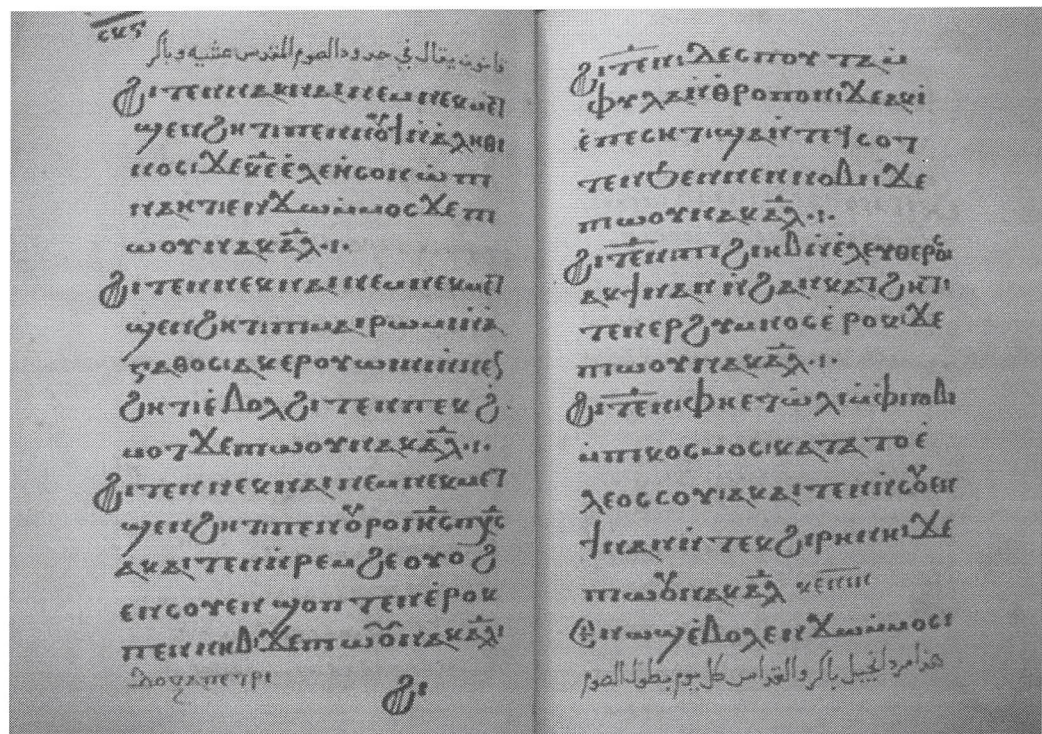 ⲥⲕⲋ
قانون يقال في حدود الصوم المقدس عشيه وباكر
Ϩⲓⲧⲉⲛⲛⲁⲕⲛⲁⲓⲛⲉⲙⲛⲉⲕⲙⲉⲧ
ϣⲉⲛϩⲏⲧⲓⲡⲉⲛⲛⲟⲩϯⲛ̀ⲁⲗⲏⲑⲓ
ⲛⲟⲥⲓϫⲉⲕ̅ⲉ̅ⲉ̀ⲗⲉⲏⲥⲟⲛⲱ̀ⲡⲓ
ⲛⲁⲏⲧⲓⲉⲛϫⲱⲙ̀ⲙⲟⲥϫⲉⲡⲓ
ⲱⲟⲩⲛⲁⲕⲁ̅ⲗ̅·ⲓ·
Ϩⲓⲧⲉⲛⲛⲉⲕⲛⲁⲓⲛⲉⲙⲛⲉⲕⲙⲉⲧ
ϣⲉⲛϩⲏⲧⲓⲡⲓⲙⲁⲓⲣⲱⲙⲓⲛ̀ⲁ
ⲅⲁⲑⲟⲥⲓⲁⲕⲉⲣⲟⲩⲱⲓⲛⲓⲛ̀ⲛⲉⲥ
ϩⲏⲧⲓⲉ̀ⲃⲟⲗϩⲓⲧⲉⲛⲡⲉⲕϩ̀
ⲙⲟⲧϫⲉⲡⲓⲱⲟⲩⲛⲁⲕⲁ̅ⲗ̅·ⲓ·
Ϩⲓⲧⲉⲛⲛⲉⲕⲛⲁⲓⲛⲉⲙⲛⲉⲕⲙⲉⲧ
ϣⲉⲛϩⲏⲧⲓⲡⲉⲛⲟⲩⲣⲟⲓⲏ̅ⲥ̅ⲡⲭ̅ⲥ̅
ⲁⲕⲁⲓⲧⲉⲛⲛ̀ⲣⲉⲙϩⲉⲟⲩⲟϩ
ⲉⲛⲥⲟⲩⲉⲛϣⲟⲡⲧⲉⲛⲉ̀ⲣⲟⲕ
ⲡⲉⲛⲛⲏⲃⲓϫⲉⲡⲓⲱⲟⲩⲛⲁⲕⲁ̅ⲗ̅ⲓ
Ϩⲓ
Ϩⲓⲧⲉⲛⲓⲗⲉⲥⲡⲟⲩⲧⲁⲙ
ⲫⲩⲗⲁⲛ̀ⲑⲣⲟⲡⲟⲛⲓϫⲉⲁⲕⲓ
ⲉ̀ⲡⲉⲥⲏⲧⲓϣⲁⲛⲧⲉϥⲥⲟⲧ
ⲧⲉⲛϧⲉⲛⲛⲉⲛⲛⲟⲃⲓⲓϫⲉ
ⲡⲓⲱⲟⲩⲛⲁⲕⲁ̅ⲗ̅·ⲓ·
Ϩⲓⲧⲉⲛⲡⲓϩⲓⲕⲃⲓⲛ̀ⲉ̀ⲗⲉⲩⲑⲉⲣⲟⲥⲓ
ⲁⲕϯⲛⲁⲛⲛ̀ϩⲁⲛⲕⲁϯϩⲏⲧⲓ
ⲧⲉⲛⲉⲣϩⲩⲙⲛⲟⲥⲉ̀ⲣⲟⲕⲓϫⲉ
ⲡⲓⲱⲟⲩⲛⲁⲕⲁ̅ⲗ̅·ⲓ·
Ϩⲓⲧⲉⲛⲓⲫⲏⲉⲧⲱ̀ⲗⲓⲙ̀ⲫⲛⲟⲃⲓ
ⲙ̀ⲡⲓⲕⲟⲥⲙⲟⲥⲓⲕⲁⲧⲁⲧⲟⲉ̀
ⲗⲉⲟⲥⲥⲟⲩⲓⲁⲕⲁⲓⲧⲉⲛⲛ̀ⲥⲟⲩⲉⲛ
ϯⲛⲁⲛⲛ̀ⲧⲉⲕϩⲓⲣⲏⲛⲏⲓϫⲉ
ⲡⲓⲱⲟⲩⲛⲁⲕⲁ̅ⲗ̅ ⲕⲉⲛⲓⲛ
Ⲑⲛⲱϣⲉ̀ⲃⲟⲗⲉⲛϫⲱⲙ̀ⲙⲟⲥⲓ
هذا مرد انجيل باكر والقداس كل يوم بطول الصوم